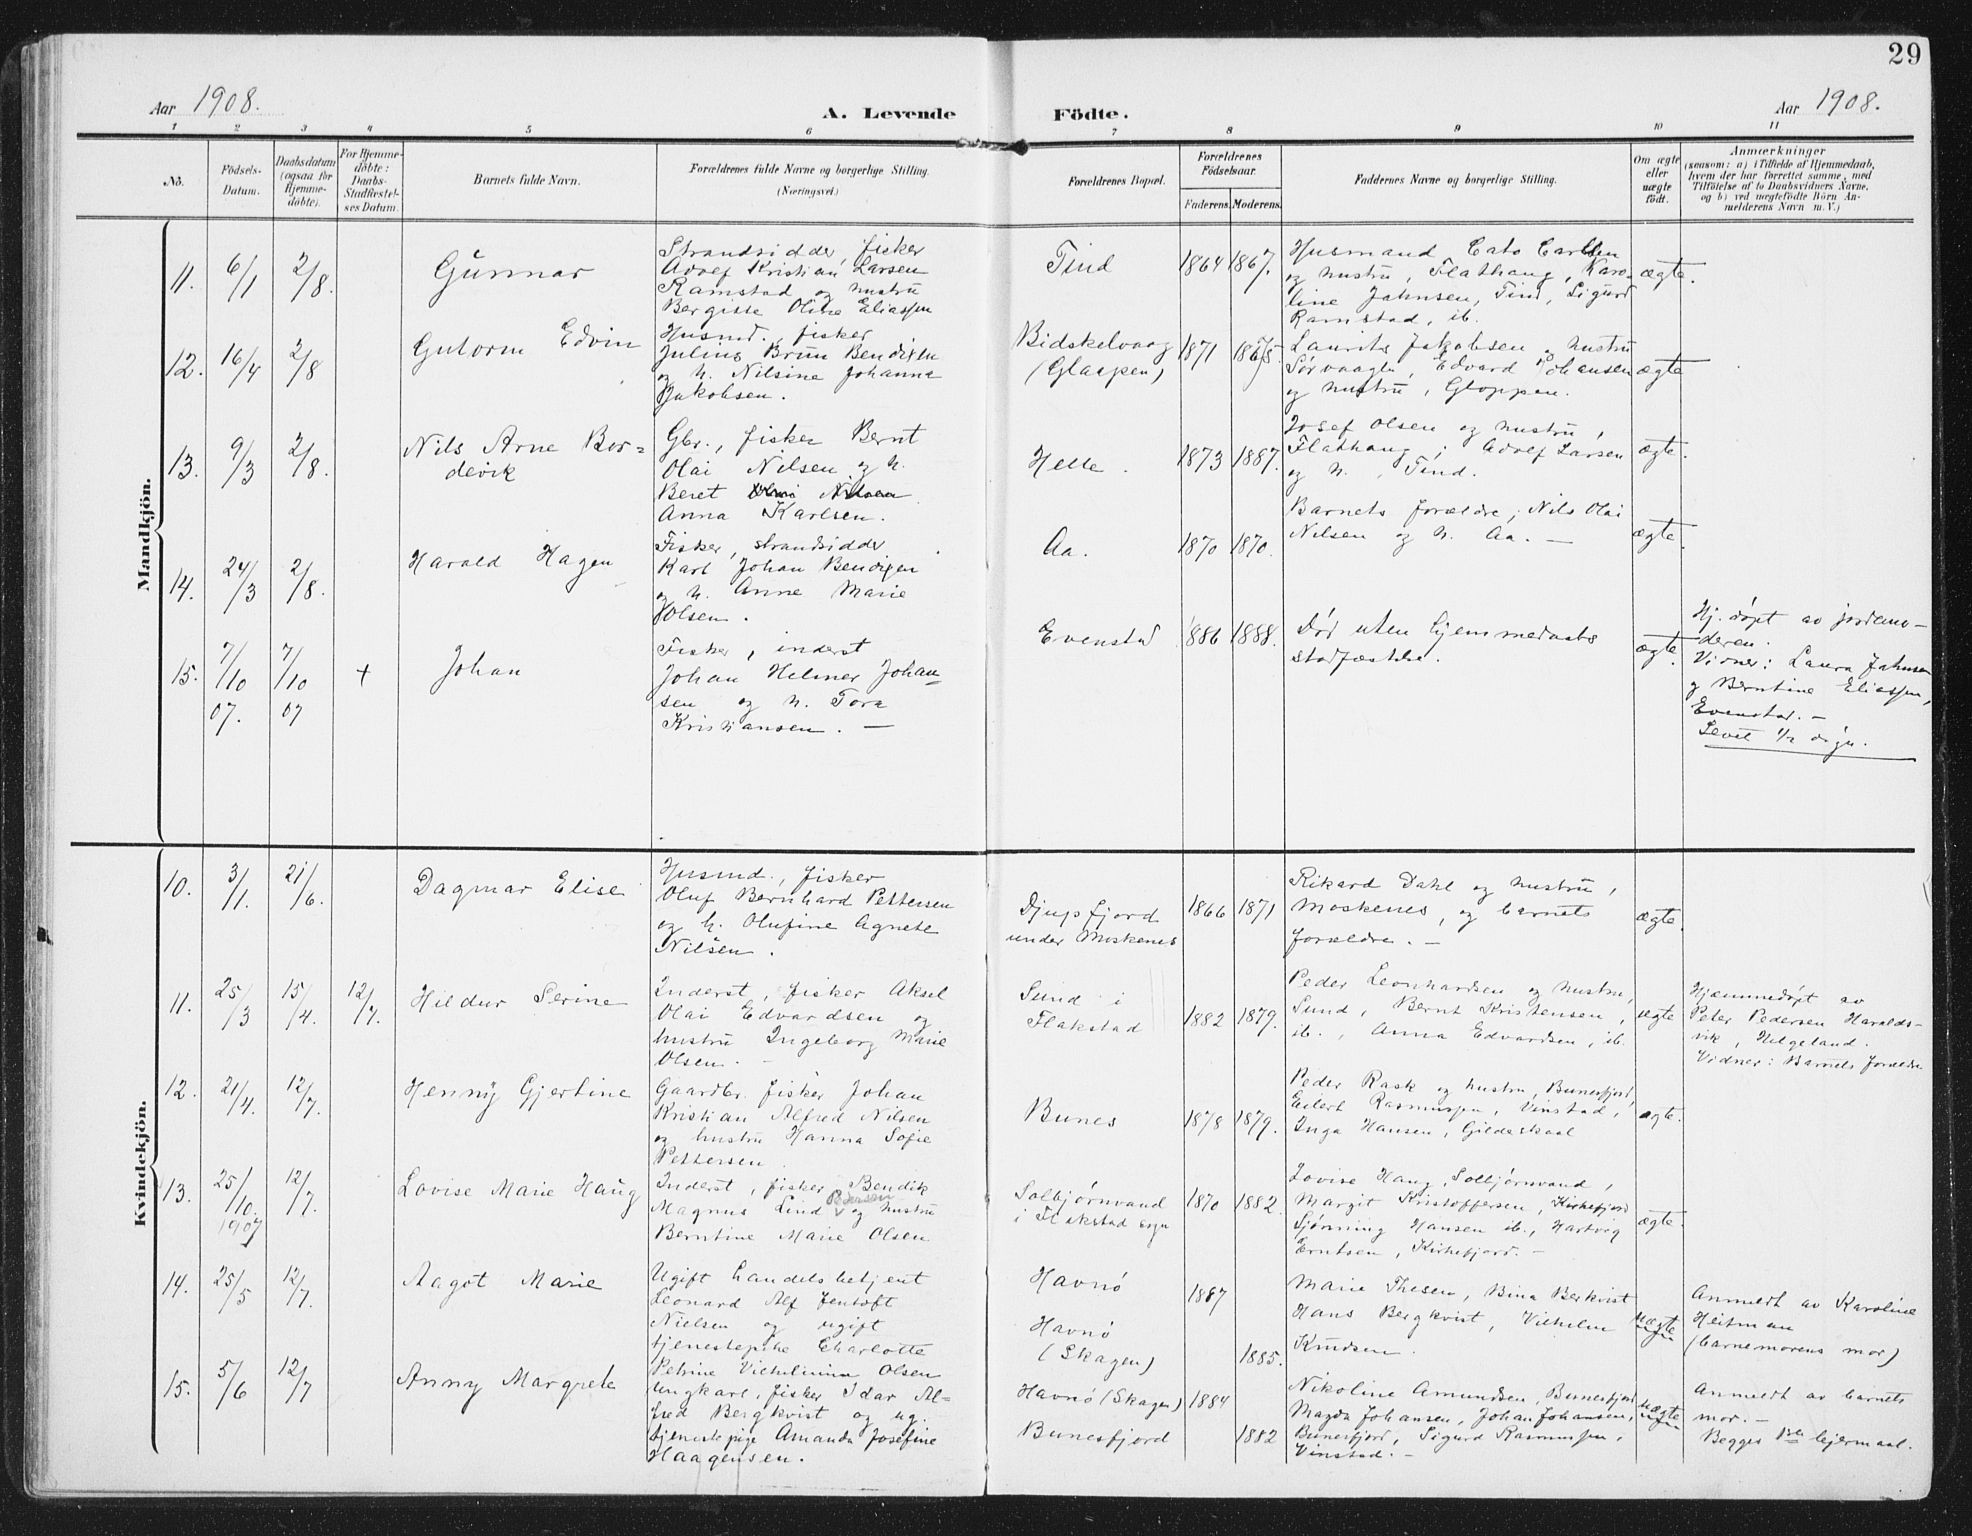 29
Aar 1908.
A. Levende Födte.
Aar 1908.
1 2 3 4 5 6 7 8 9 10 11
No.
Födsels-
Datum.
Daabsdatum
(ogsaa for
Hjemme-
döbte).
For Hjemme-
döbte:
Daabs-
Stadfæstel-
ses Datum.
Barnets fulde Navn.
Forældrenes fulde Navne og borgerlige Stilling.
(Næringsvei.)
Forældrenes Bopæl.
Forældrenes
Födselsaar.
Faderens. Moderens.
Faddernes Navne og borgerlige Stilling.
Om ægte
eller
uægte
födt.
Anmærkninger
(saasom: a) i Tilfælde af Hjemmedaab,
hvem der har forrettet samme, med
Tilföielse af to Daabsvidners Navne,
og b) ved uægtefödte Börn An-
melderens Navn m. V.)
Mandkjön.
11. 6/1 2/8. Gunnar
Strandsidder, fisker
Adolf Kristian Larsen
Ramstad og hustru
Bergitte Oline Eliassen
Tind 1864 1867.
Husmand Cato Carlsen
og hustru, Flathaug, Karo-
line Jahnsen, Tind, Sigurd
Ramstad, ib.
ægte.
12. 16/4 2/8 Gutorm Edvin
Husmd., fisker
Julius Brun Bendixen
og h. Nilsine Johanna
Jakobsen.
Bidskelvaag
(Glaapen)
1871
Laurits Jakobsen og hustru
Sørvaagen, Edvard Johansen
og hustru, Gloppen.
ægte
13. 9/3 2/8. Nils Arne Bor-
devik
Gbr., fisker Bernt
Olai Nilsen og h.
Beret
Anna Karlsen.
Helle. 1873 1887.
Josef Olsen og hustru,
Flathaug; Adolf Larsen
og h., Tind.
ægte.
14. 24/3 2/8. Harald Hagen
Fisker, strandsidder
Karl Johan Bendixen
og h. Anne Marie
Olsen.
Aa. 1870 1870.
Barnets forældre, Nils Olai
Nilsen og h. Aa. —
ægte.
15. 7/10 07. 7/10 07 + Johan
Fisker, inderst
Johan Helmer Johan-
sen og h. Tora
Kristiansen. —
Evenstad 1886 1888.
Død uten hjemmedaabs
stadfæstelse.
ægte.
Hj. døpt av jordemo-
deren.
Vidner: Laura Jahnsen
og Berntine Eliassen,
Evenstad. —
Levet 1/2 døgn.
Kvindekjön.
10. 3/1. 21/6. Dagmar Elise
Husmd., fisker
Oluf Bernhard Pettersen
og h. Olufine Agnete
Nilsen.
Djupfjord
under Moskenes
1866 1871
Rikard Dahl og hustru,
Moskenes, og barnets
forældre. —
ægte.
11. 25/3 15/4. 12/7. Hildur Serine
Inderst, fisker Aksel
Olai Edvardsen og
hustru Ingeborg Marie
Olsen. —
Sund i
Flakstad
1882 1879.
Peder Leonhardsen og hustru,
Sund, Bernt Kristensen,
ib., Anna Edvardsen, ib.
ægte
Hjemmedøpt av
Peter Pedersen Haralds-
vik, Helgeland.
Vidner: Barnets forældre
12. 21/4. 12/7. Henny Gjertine
Gaardbr. fisker Johan
Kristian Alfred Nilsen
og hustru Hanna Sofie
Pettersen.
Bunes 1878 1879.
Peder Rask og hustru, Bunesfjord,
Eilert Rasmussen, Vinstad,
Inga Hansen, Gildeskaal
ægte.
13. 25/10. 1907 12/7. Lovise Marie Haug
Inderst, fisker Bendik
Magnus Lind og hustru
Berntine Marie Olsen
Solbjørnvand
i Flakstad sogn
1870 1882.
Lovise Haug, Solbjørnvand,
Margit Kristoffersen, Kirkefjord
Sjønning Hansen ib., Hartvig
Erntsen, Kirkefjord. —
ægte.
14. 25/5 12/7. Aagot Marie
Ugift handelsbetjent
Leonard Alf Jentoft
Nielsen og ugift
tjenestepike Charlotte
Petrine Vilhelmina Olsen
Havnö 1887
Havnö
(Skagen) 1885.
Marie Thesen, Bina Berkvist
Hans Bergkvist, Vilhelm
Knudsen.
uægte
Anmeldt av Karoline
Heitman
(barnemorens mor)
15. 5/6 12/7 Anny Margrete
Ungkarl, fisker Idar Al-
fred Bergkvist og ug.
tjenestepige Amanda Josefine
Haagensen.
Havnö (Skagen) 1884
Bunesfjord 1882
Nikoline Amundsen, Bunesfjord
Magda Johansen, Johan Johansen,
Bunesfjord, Sigurd Rasmussen,
Vinstad. —
uægte
Anmeldt av barnets
mor. —
Begges 1ste leiermaal.